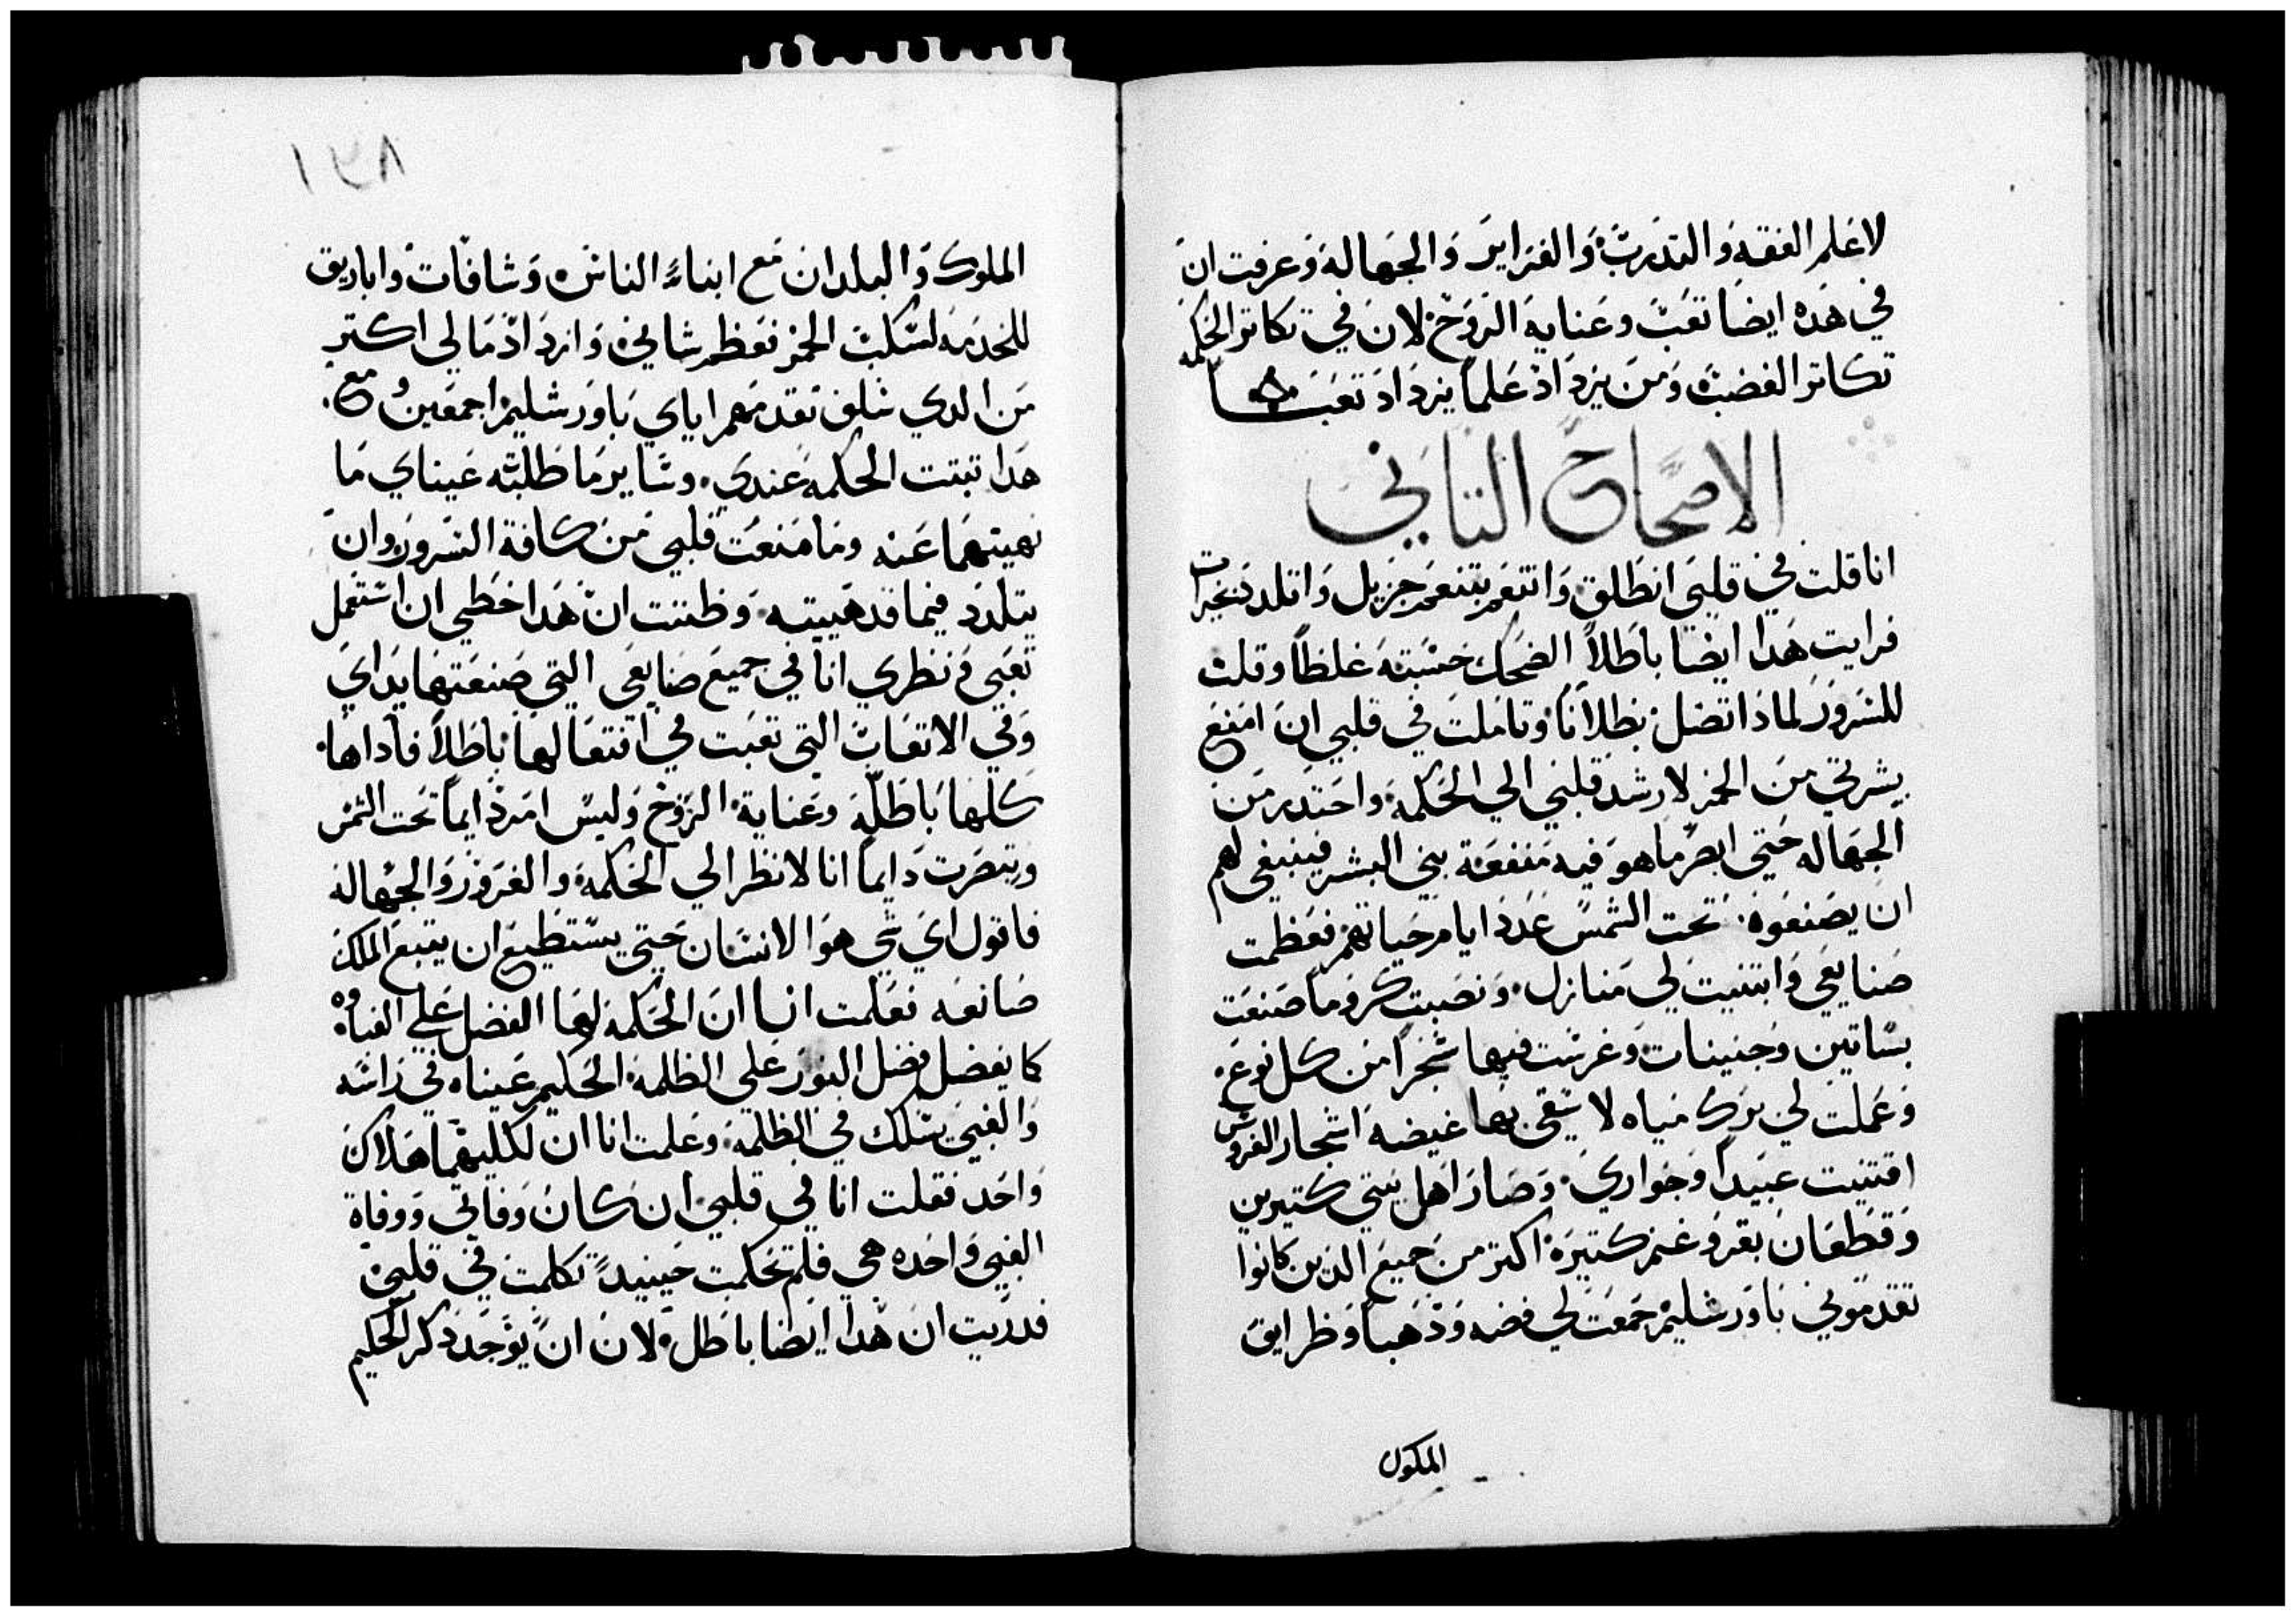 لاعلم الفقه والتدرب والغراير والجهاله وعرفت ان
في هده ايضا تعب وعناية الروح لان في تكاتر الحكمه
تكاتر الغضب ومن يزداد علما يزداد تعبا
الاصحاح التاني
انا قلت في قلبي انطلق واتنعم بتنعم جزيل واتلدد بخيرات
فرايت هدا ايضا باطلا الضحك حسبته غلطا وقلت
للسرور لمادا تضل بطلانا وتاملت في قلبي ان امنع
بشرتي من الخمر لارشد قلبي الي الحكمة واحتدر من
الجهاله حتي ابصر ما هو فيه منفعة بني البشر فينبغي لهم
ان يصنعوه تحت الشمس عدد ايام حياتهم فعظمت
صنايعي وابتنيت لي منازل ونصبت كروما صنعت
بساتين وجنينات وغرست فيها شجرا من كل نوع
وعملت لي برك مياه لاسقي بها غيضة اشجار الغروس
اقتنيت عبيدا وجواري وصار اهل بيتي كتيرين
وقطعان بقر وغنم كتيرة اكتر من جميع الدين كانوا
تقدموني باورشليم جمعت لي فضه ودهبا وظرايق
الملوك
١٢٨
الملوك والبلدان مع ابناء الناس وساقات واباريق
للخدمه لسكب الخمر فعظم شاني وازداد مالي اكتر
من الدي سلف تقدمهم اياي باورشليم اجمعين ومع
هدا تبتت الحكمه عندي وساير ما طلبته عيناي ما
نهيتهما عنه وما منعت قلبي من كافة السرور وان
يتلدد فيما قد هييته وظننت ان هدا حظي ان استعمل
تعبي ونظري انا في جميع صنايعي التي صنعتها يداي
وفي الاتعاب التي تعبت في افتعالها باطلا فاداها
كلها باطلة وعناية الروح وليس امر دايما تحت الشمس
وتبصرت دايما انا لانظر الي الحكمة والغرور والجهاله
فاقول اي شي هو الانسان حتي يستطيع ان يتبع الملك
صانعه فعلمت انا ان الحكمة لها الفضل علي الغباوه
كما يفضل فضل النور علي الظلمة الحكيم عيناه في راسه
والغبي يسلك في الظلمة وعلمت انا ان لكليهما هلاك
واحد فقلت انا في قلبي ان كان وفاتي ووفاة
الغبي واحده هي فلم تحكمت حينيد تكلمت في قلبي
فدريت ان هدا ايضا باطل لان ان يوجد دكر الحكيم